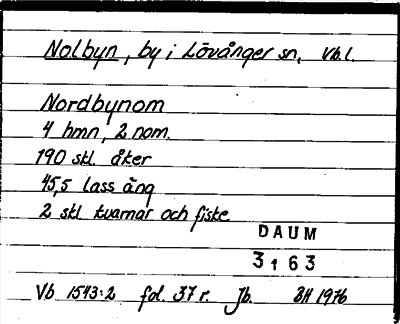 Nolbyn, by i Lövånger sn, Vb.l.
Nordbynom
4 hmn, 2 nom.
190 skl. åker
45,5 lass äng
2 skl kvarnar och fiske
DAUM
3163
Vb 1543:2 fol. 37 r. Jb. BH 1976